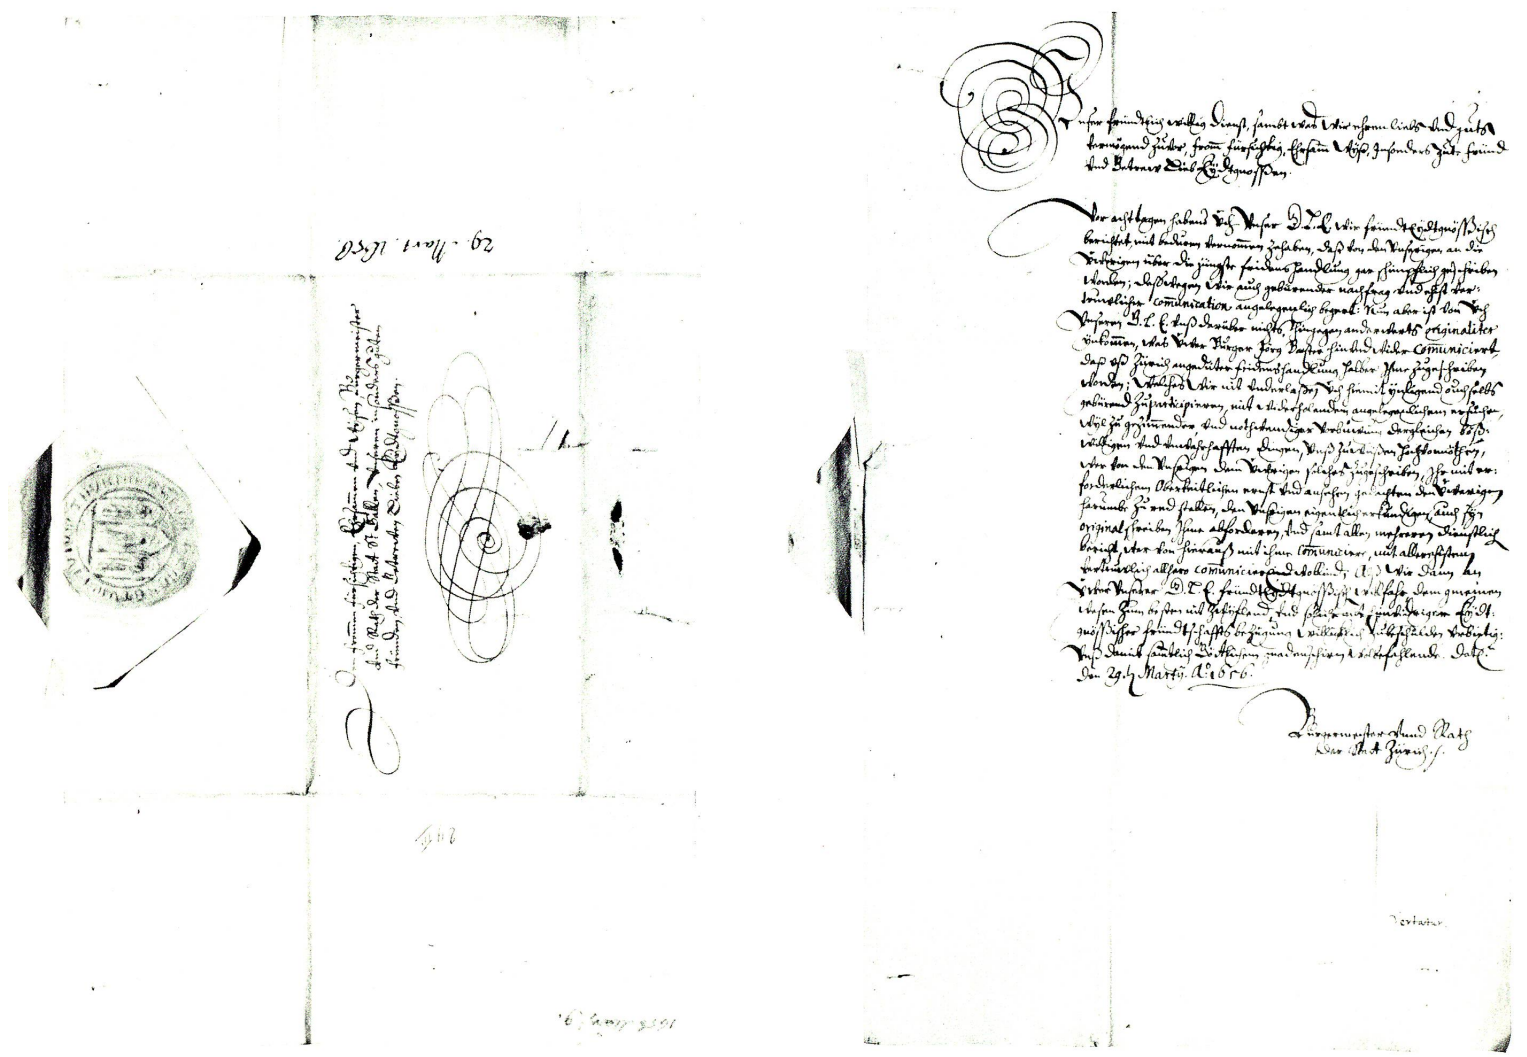 29. Mart. 1656.
Den frommen fürsichtigen, Ehrsammen und Wÿsen, Burgermeister
und Rath der Statt St. Gallen, unseren insonders guten
fründen, und Getreüwen Lieben Eÿdtgnoßen.
Unser fründtlich willig Dienst, sambt was wir ehren liebs und guts
vermögend zuvor, from̄, fürsichtig, Ehrsam̄, Wÿß, Insonders gute fründ
und Getreuw Lieb Eÿdtgnoßen.
Vor acht tagen habend Üch Unser G. L. E. wir fründt Eÿdtgnößisch
berichtet, mit beduren vernom̄en zehaben, daß von den Unserigen an die
Üwerigen über die jüngste fridens handlung gar schimpflich geschriben
worden; deßwegen wir auch gebürender nachfrag und ehist ver-
truwlicher com̄unication angelegenlich begert. Nun aber ist von Üch
Unseren G. L. E. unß darüber nichts, hingegen anderwerts originaliter
ynkom̄en, was Üwer Burger Jörg hin und wider com̄uniciert,
daß uß Zürich angedüter fridenshandlung halber Ihme zugeschriben
worden; Welches wir nit underlaßen Üch hiemit ynligend auch selbs
gebürend zu participieren, mit widerholendem angelegenlichem ersuchen,
wyl zu gezim̄ender und nothwendiger dergleichen böß-
willigen und unwahrhafften dingen, unß zu wüßen hochvonnöthen,
wer von den Unserigen dem Üwerigen solches zugeschriben, Ihr mit er-
forderlichem Oberkeitlichem ernst und ansehen gedachten den Üwerigen
harumbe zu red stellen, den Unserigen eigentlich erkundigen, auch syn
original schreiben Ihme abforderen, und samt allem mehreren dienstlich
bericht, wer von hierauß mit ihme com̄uniciere, mit allerehistem
vertruwlich allhero com̄unicieren wollind; Alß wir dann an
Üwer Unserer G. L. E. fründt Eÿdtgnößisch willfahr dem gmeinen
wesen zum besten nit zwÿflend, und solche mit
gnößischer fründtschaffts bezügung willigklich zubeschulden urbietig;
Unß damit sämtlich Göttlichem gnadenschirm wolbefählende. Dat.
den 29.ᵗ Martÿ. Aº. 1656.
Burgermeister unnd Rath
der Statt Zürich.
Vertatur.